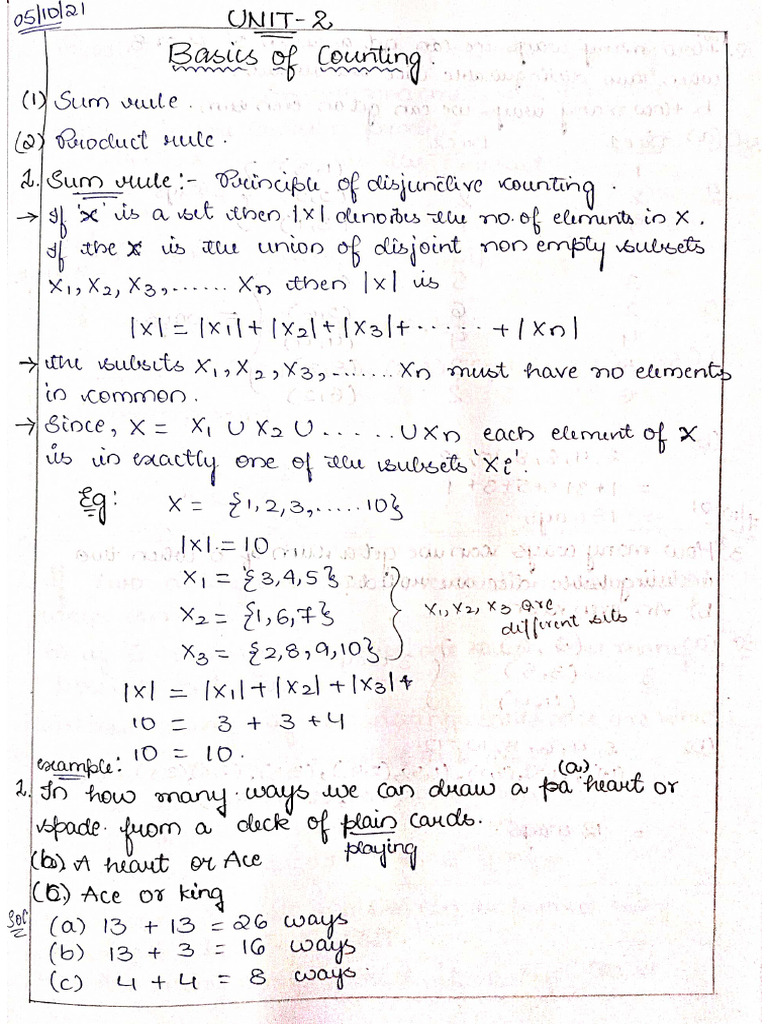 05/10/21
UNIT-2
Basics of Counting.
(1) Sum rule.
(2) Product rule.
1. Sum rule :- Principle of disjunctive counting.
→ If 'x' is a set then |x| denotes the no. of elements in x.
If the x is the union of disjoint non empty subsets
X1, X2, X3, ...... Xn then |x| is
|X| = |X1| + |X2| + |X3| + ...... + |Xn|
→ the subsets X1, X2, X3, ...... Xn must have no elements
in common.
→ Since, X = X1 ∪ X2 ∪ ...... ∪ Xn each element of X
is in exactly one of the subsets 'Xi'.
Eg: X = {1, 2, 3, ..... 10}
|X| = 10
X1 = {3, 4, 5}
X2 = {1, 6, 7}
X3 = {2, 8, 9, 10}
X1, X2, X3 are
different sets
|X| = |X1| + |X2| + |X3| +
10 = 3 + 3 + 4
10 = 10.
example:
(a)
1. In how many ways we can draw a pa heart or
spade from a deck of plain cards.
playing
(b) A heart or Ace
(C) Ace or king
Sol (a) 13 + 13 = 26 ways
(b) 13 + 3 = 16 ways
(c) 4 + 4 = 8 ways.